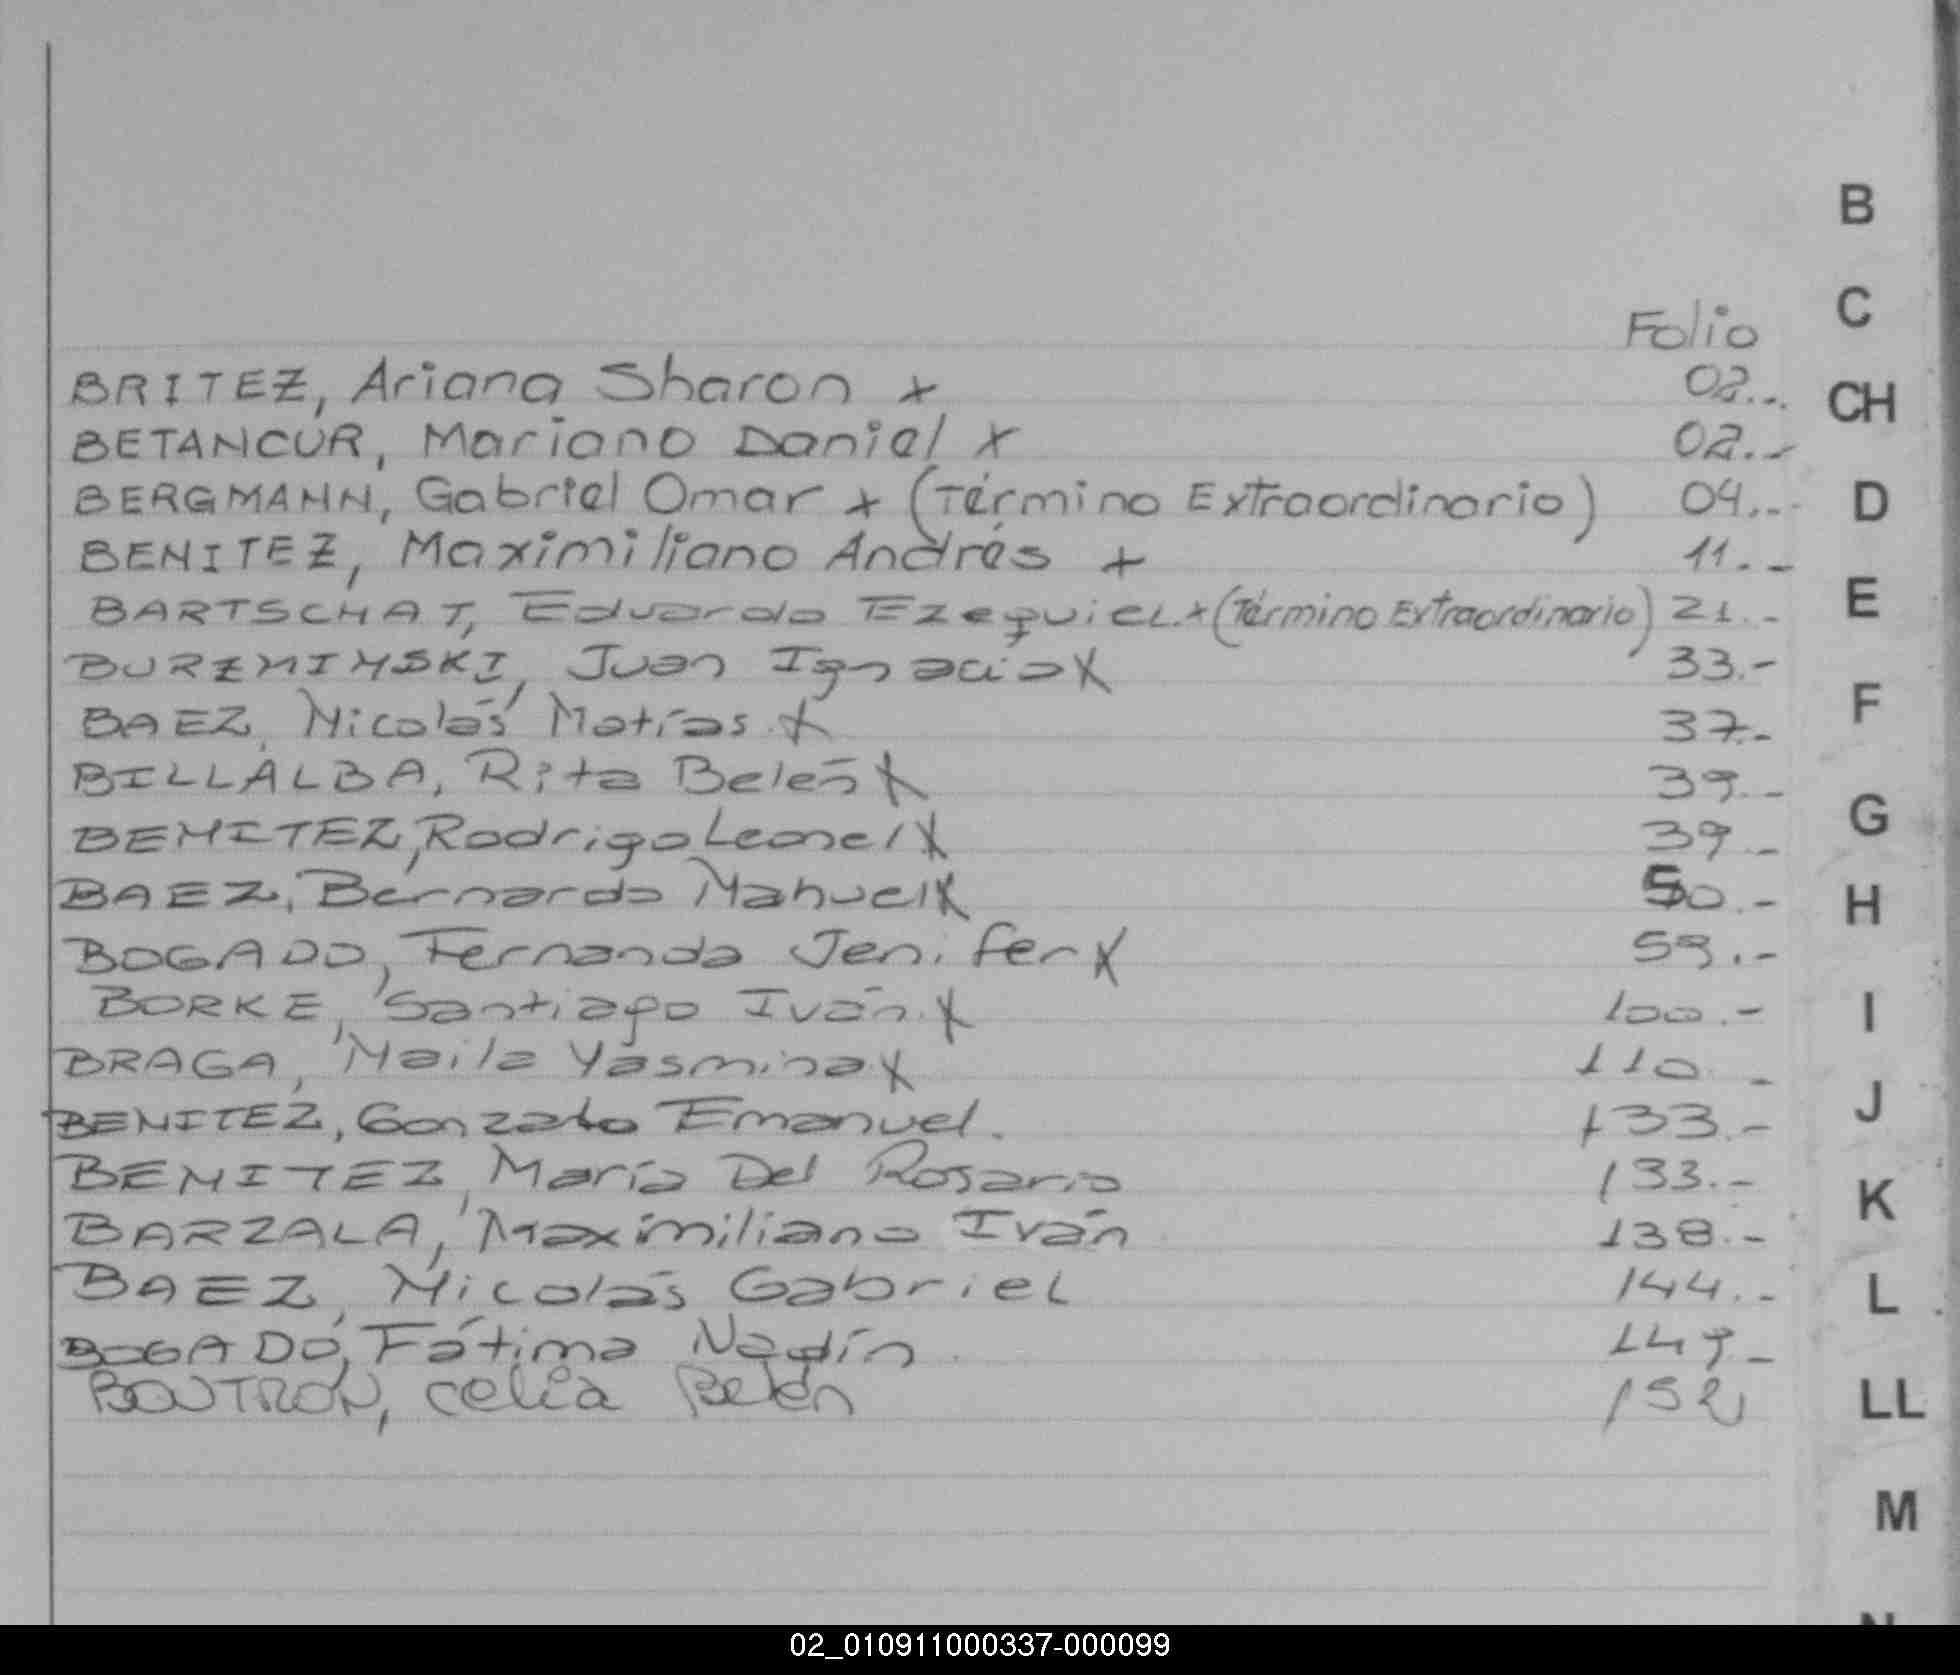 B
C
Folio
BRITEZ, Ariana Sharon x 02.-
CH
BETANCUR, Mariano Daniel x 02.-
BERGMANN, Gabriel Omar x (Término Extraordinario) 04.-
D
BENITEZ, Maximiliano Andrés x 11.-
BARTSCHAT, Eduardo Ezequiel.x (Término Extraordinario) 21.-
E
BURZMINSKI, Juan Ignacio X 33.-
BAEZ, Nicolás Matías. X 37.-
F
BILLALBA, Rita Belén X 39.-
BENITEZ, Rodrigo Leonel X 39.-
G
BAEZ, Bernardo Manuel X 50.-
H
BOGADO, Fernanda Jenifer X 59.-
BORKE, Santiago Iván. X 100.-
I
BRAGA, Maila Yasmina X 110.-
BENITEZ, Gonzalo Emanuel. 133.-
J
BENITEZ, María Del Rosario 133.-
K
BARZALA, Maximiliano Iván 138.-
BAEZ, Nicolás Gabriel 144.-
L
BOGADO, Fátima Nadín 149.-
BOUTRON, Celia Belén 152
LL
M
N
02_010911000337-000099